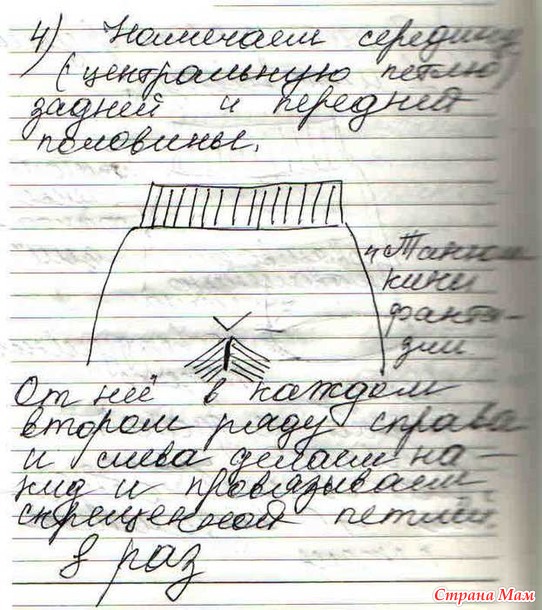 4) Намечаем середину
(центральную петлю)
задней и передней
половины.
"Танюш
кины
фанта-
зии
От неё в каждом
втором ряду справа
и слева делаем на-
кид и провязываем
скрещенной петлей.
8 раз
Страна Мам